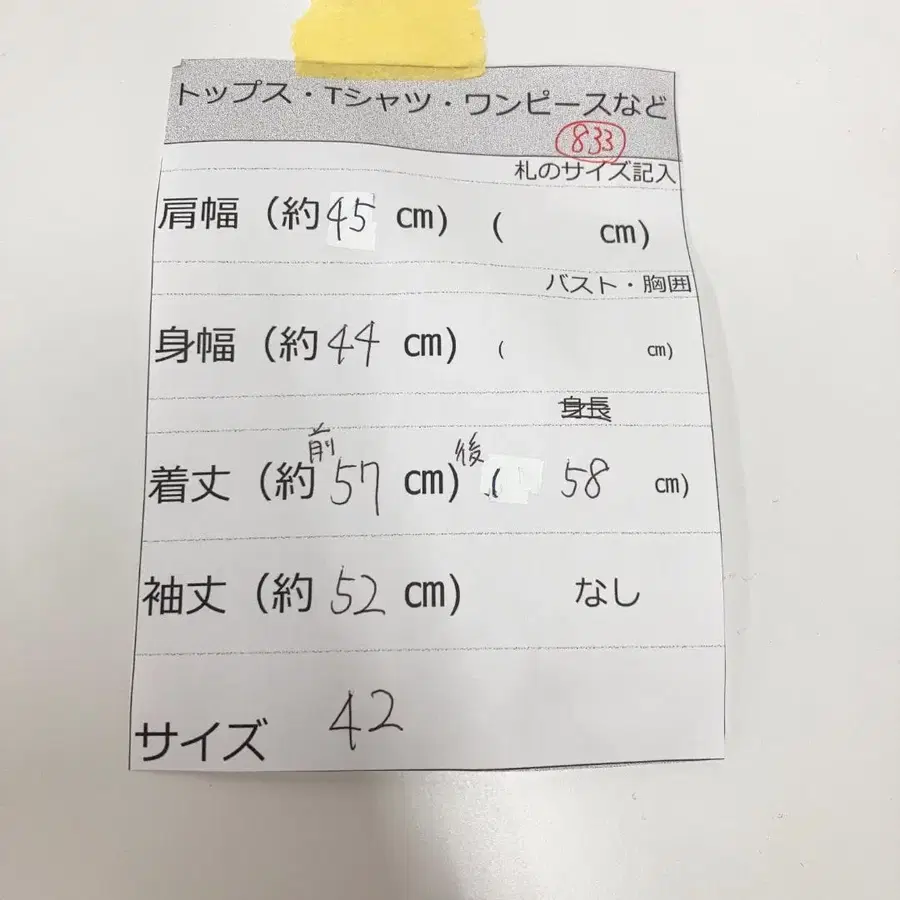 トップス・Tシャツ・ワンピースなど
833
札のサイズ記入
肩幅（約45 cm）（ cm）
バスト・胸囲
身幅（約44 cm）（ cm）
身長
着丈（約前57 cm）後（ 58 cm）
袖丈（約52 cm） なし
サイズ 42